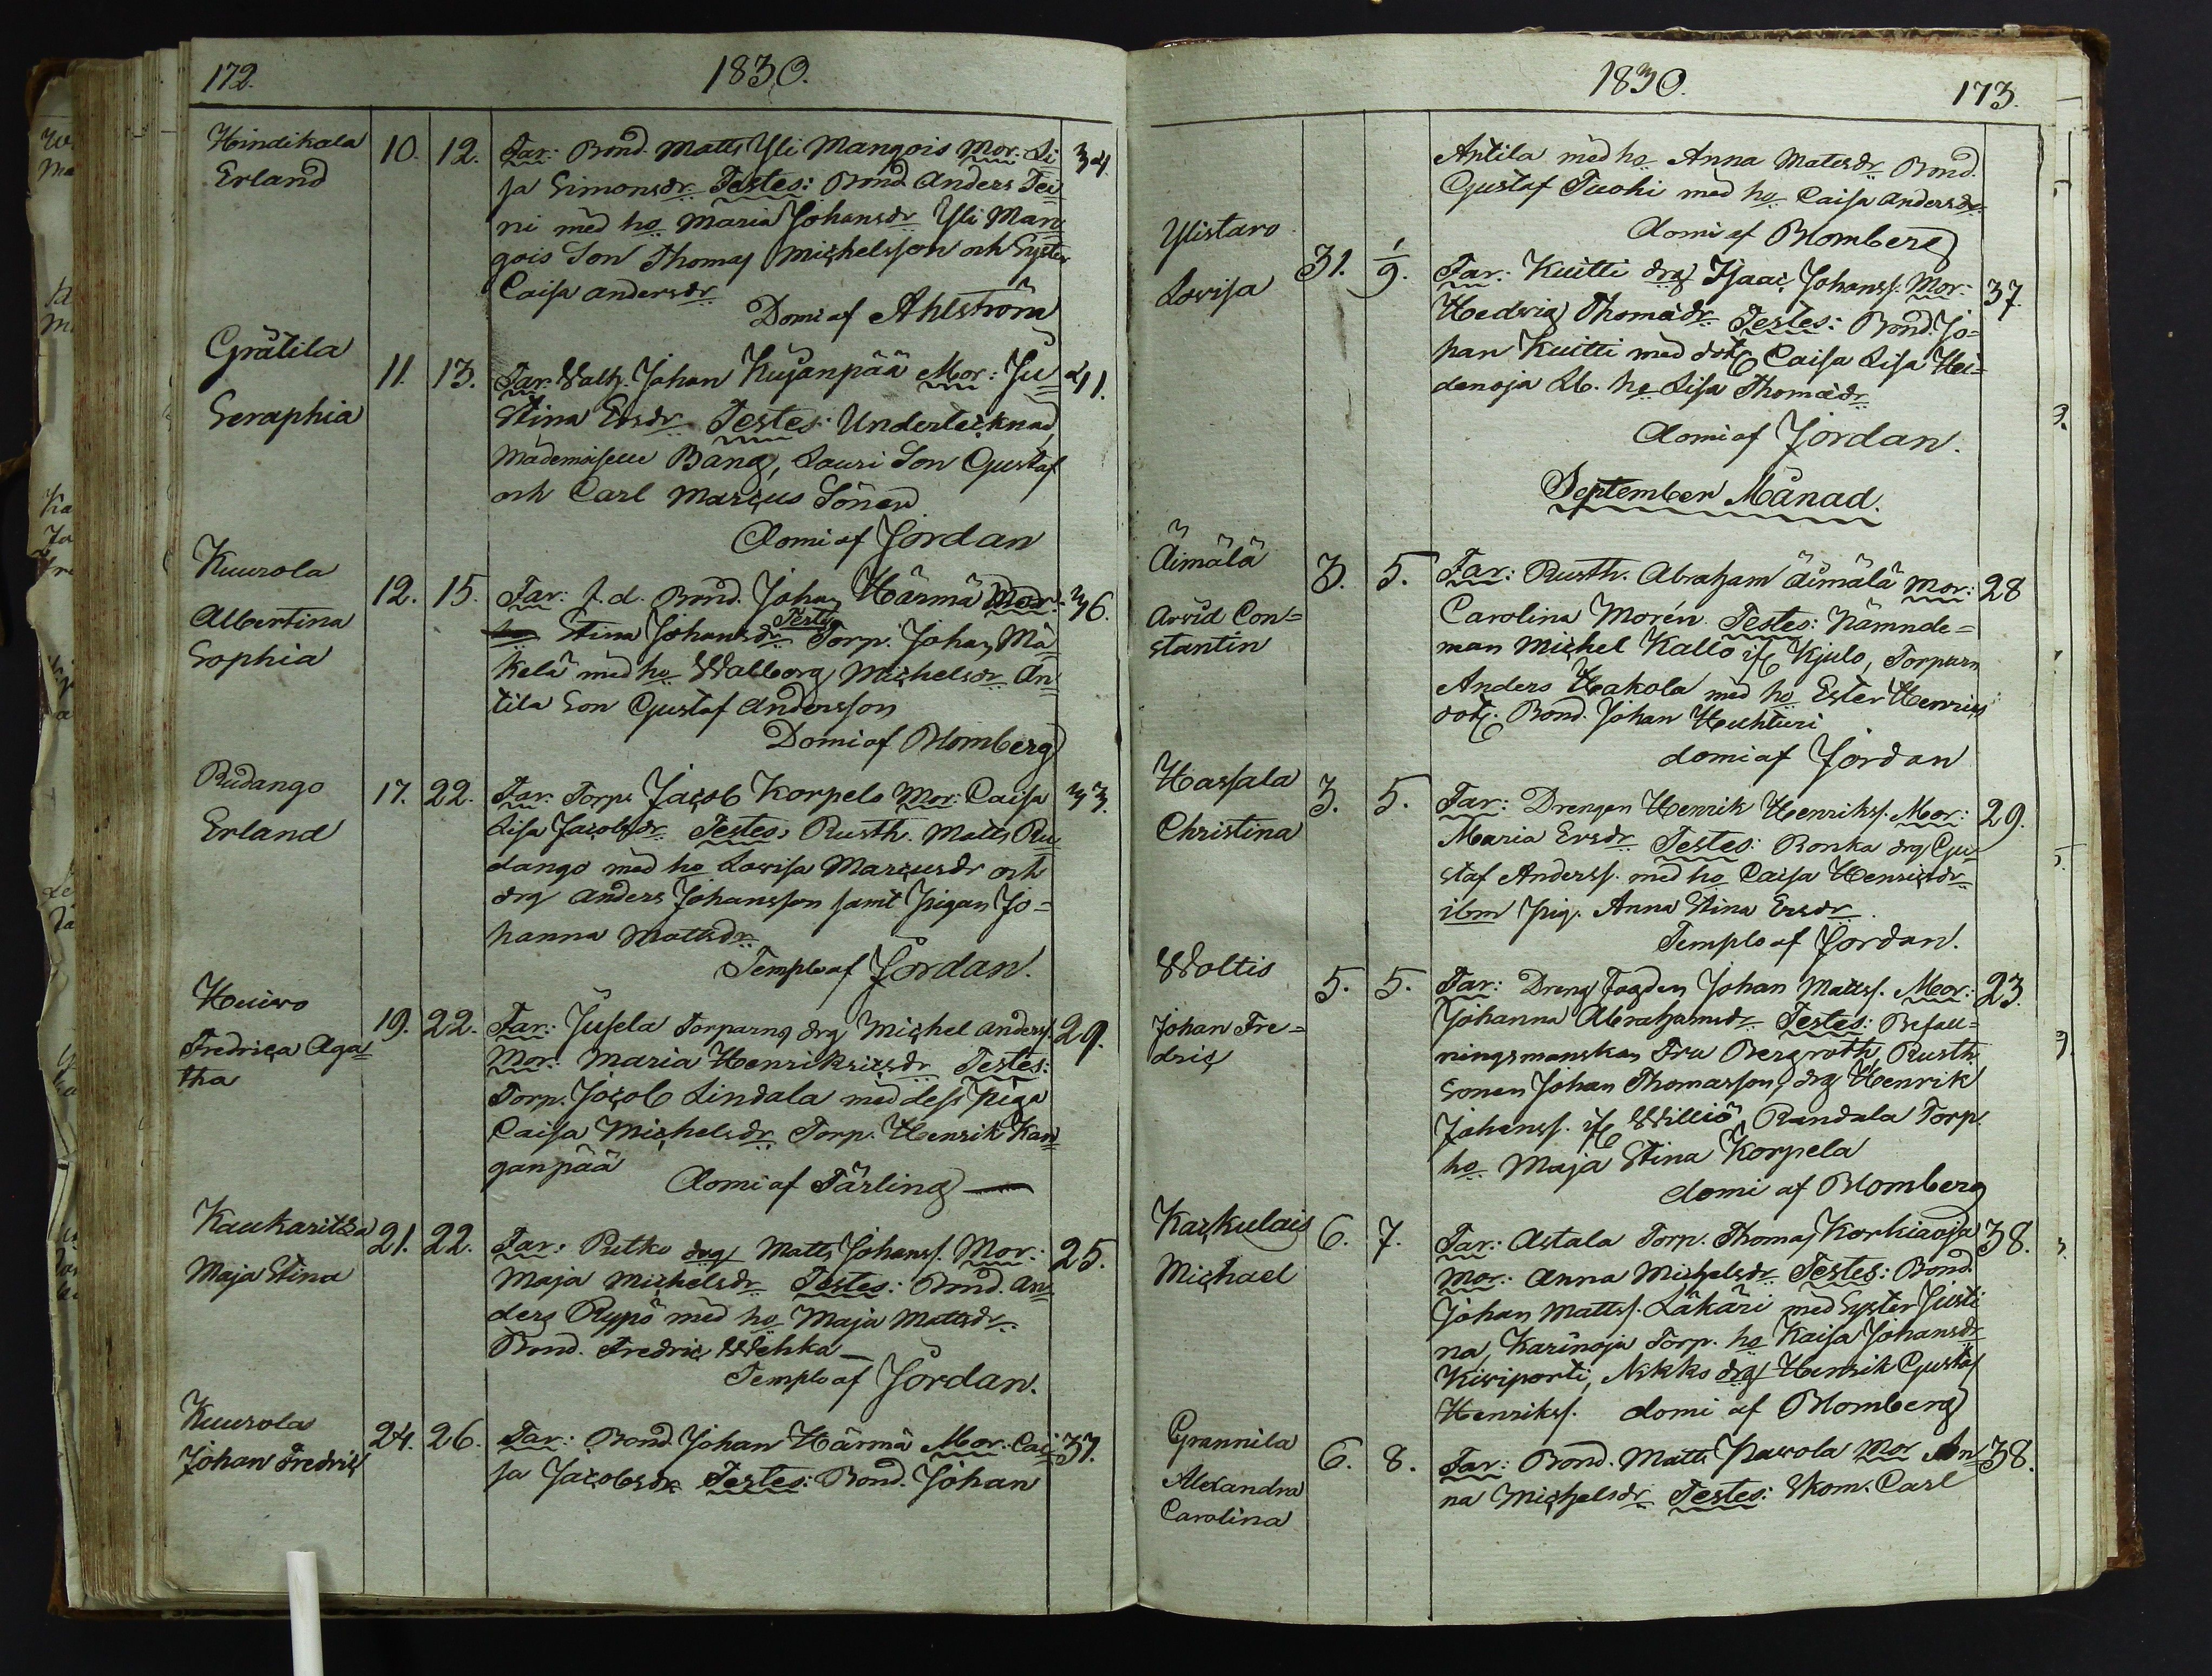 172.
1830.
Hindikala 10. 12. Far: Bond. Matts Yli Mangois Mor: Li 34.
Erland
sa Simonsdr Testes: Bond. Anders Tei
ni med ho Maria Johansdr Yli Man
gois Son Thomas Michelsson och Syster
Caisa Andersdr
Domi af Ahlström
Grätila 11. 13. Far Wallz. Johan Kujanpää Mor: Ju 41.
Seraphia
Stina Ersdr Testes: Undertecknad
Mademoiselle Bang, Lauri Son Gustaf
och Carl Marcus Söner
Domi af Jordan
Kuurola 12. 15. Far: f.d. Bond. Johan Härmä Mor: 36.
Albertina
Sophia
Stina Johansdr Testes Torp. Johan Mä
kelä med ho Walborg Michelsdr An
tila Son Gustaf Andersson
Domi af Blomberg
Rudango 17. 22. Far: Torp. Jacob Korpelo Mor: Caisa 33.
Erland
Lisa Jacobsdr Testes: Rusth. Matts Ru
dango med ho Lovisa Marcusdr och
drg Anders Johansson samt pigan Jo=
hanna Mattsdr
Templo af Jordan.
Heuivo 19. 22. Far: Jusela Torparns drg Michel Anderss. 29.
Fredrica Aga=
tha
Mor: Maria Henriksdr Testes:
Torp. Jacob Lindala med dess piga
Caisa Michelsdr Torp. Henrik Kan
ganpää
Domi af Tärling
Kaukaritza 21. 22. Far: Putko drg Matts Johanss. Mor: 25.
Maja Stina
Maja Michelsdr Testes: Bond. An
ders Ryppö med ho Maja Mattsdr
Bond. Fredric Wehka
Templo af Jordan.
Kuurola 24. 26. Far: Bond. Johan Härmä Mor: Cai 37.
Johan Fredric
sa Jacobsdr Testes: Bond. Johan
1830.
173.
Antila med ho Anna Matsdr Bond.
Gustaf Tuohi med ho Caisa Andersdr
Domi af Blomberg
Ylistaro 31. 1/9. Far: Kuitti drg Isaac Johanss. Mor: 37.
Lovisa
Hedvig Thomædr Testes: Bond. Jo=
han Kuitti med dotr Caisa Lisa Hei=
denoja Lb. ho Lisa Thomædr
Domi af Jordan.
September Månad.
Äimälä 3. 5. Far: Rusth. Abraham Äimälä Mor: 28
Arvid Con=
stantin
Carolina Morén Testes: Nämnde=
man Michel Kallo ifr Kjulo, Torparn
Anders Hakola med ho Ester Henrics
dotr. Bond. Johan Huhturi
domi af Jordan
Hassala 3. 5. Far: Drengen Henrik Henrikss. Mor: 29.
Christina
Maria Ersdr Testes: Ronka drg Gu=
staf Anderss. med ho Caisa Henricsdr
ibm pig. Anna Stina Ersdr.
Templo af Jordan.
Woltis 5. 5. Far: Dreng Fogden Johan Mattss. Mor: 23.
Johan Fre=
dric
Johanna Abrahamsdr Testes: Befall=
ningsmanskan Fru Bergroth, Rusth.
Sonen Johan Thomasson, drg Henrik
Johanss. ifr Williö, Randala Torp.
ho Maja Stina Korpela
domi af Blomberg
Karkulais 6. 7. Far: Astala Torp. Thomas Korkiaoja 38.
Michael
Mor: Anna Michelsdr Testes: Bond
Johan Mattss. Läkäri med Syster Justi
na, Karinoja Torp. ho Kaisa Johansdr
Kiviporti, Nikko drg Henrik Gustaf
Henrikss. domi af Blomberg
Grannila 6. 8. Far: Bond. Matts Pavola Mor An= 38.
Alexandra
Carolina
na Michelsdr Testes: Skom. Carl